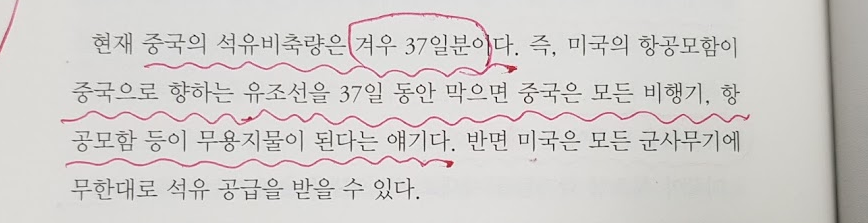 현재 중국의 석유비축량은 겨우 37일분이다. 즉, 미국의 항공모함이
중국으로 향하는 유조선을 37일 동안 막으면 중국은 모든 비행기, 항
공모함 등이 무용지물이 된다는 얘기다. 반면 미국은 모든 군사무기에
무한대로 석유 공급을 받을 수 있다.